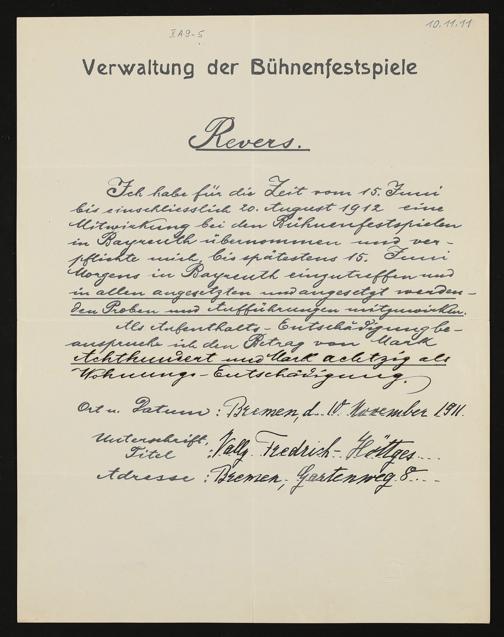 X A 9-5
10.11.11
Verwaltung der Bühnenfestspiele
Revers.
Ich habe für die Zeit vom 15. Juni
bis einschliesslich 20. August 1912 eine
Mitwirkung bei den Bühnenfestspielen
in Bayreuth übernommen und ver-
pflichte mich, bis spätestens 15. Juni
Morgens in Bayreuth einzutreffen und
in allen angesetzten und angesetzt werden-
den Proben und Aufführungen mitzuwirken.
Als Aufenthalts-Entschädigung be-
anspruche ich den Betrag von Mark
Achthundert und Mark achtzig als
Wohnungs-Entschädigung.
Ort u. Datum: Bremen, d. 10. November 1911.
Unterschrift,
Titel : Vally Fredrich-Höttges
Adresse: Bremen, Gartenweg 8